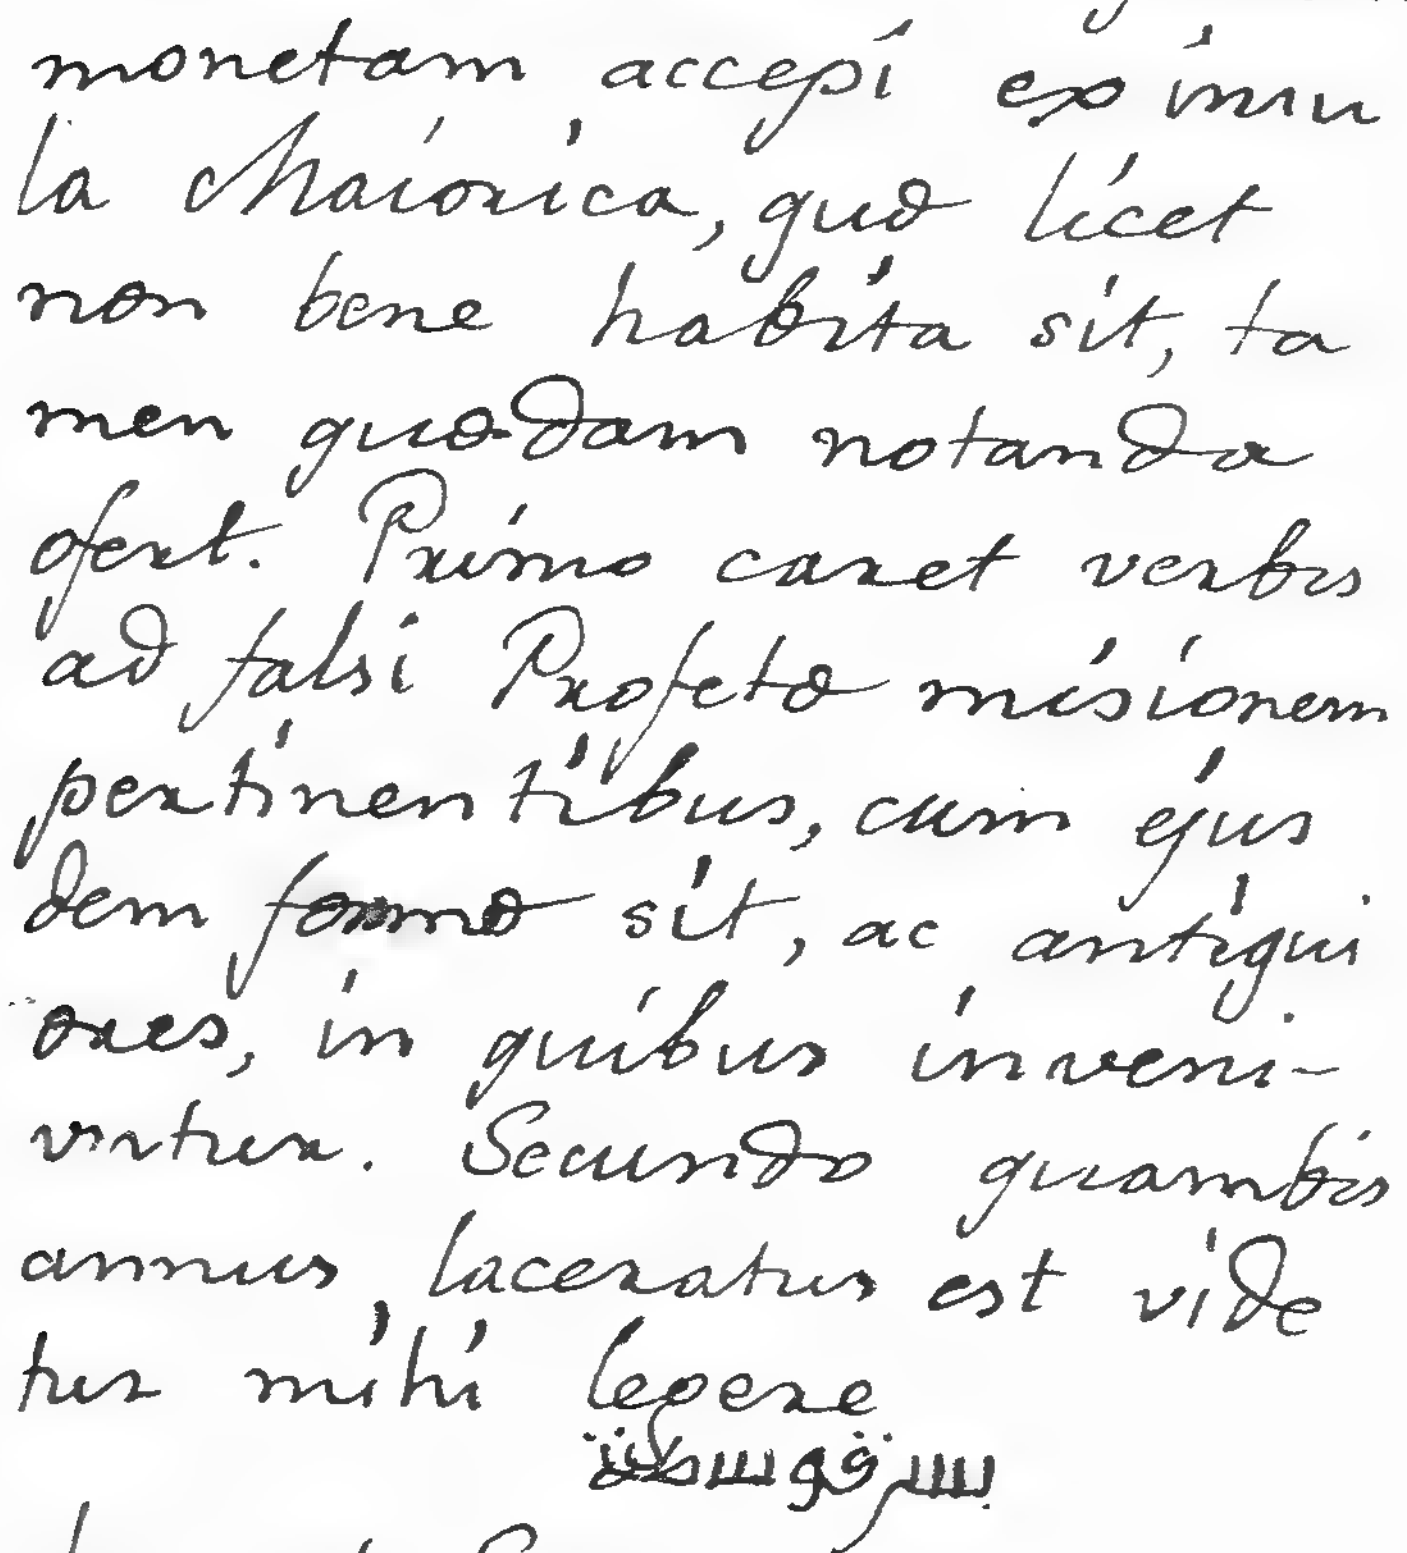 monetam accepi ex insu
la Maiorica, quæ licet
non bene habita sit, ta
men quædam notanda
ofert. Primo caret verbis
ad falsi Profetæ misionem
pertinentibus, cum ejus
dem formæ sit, ac antiqui
ores, in quibus inveni-
untur. Secundo quambis
annus, laceratus est vide
tur mihi legere
بسرقوسطة